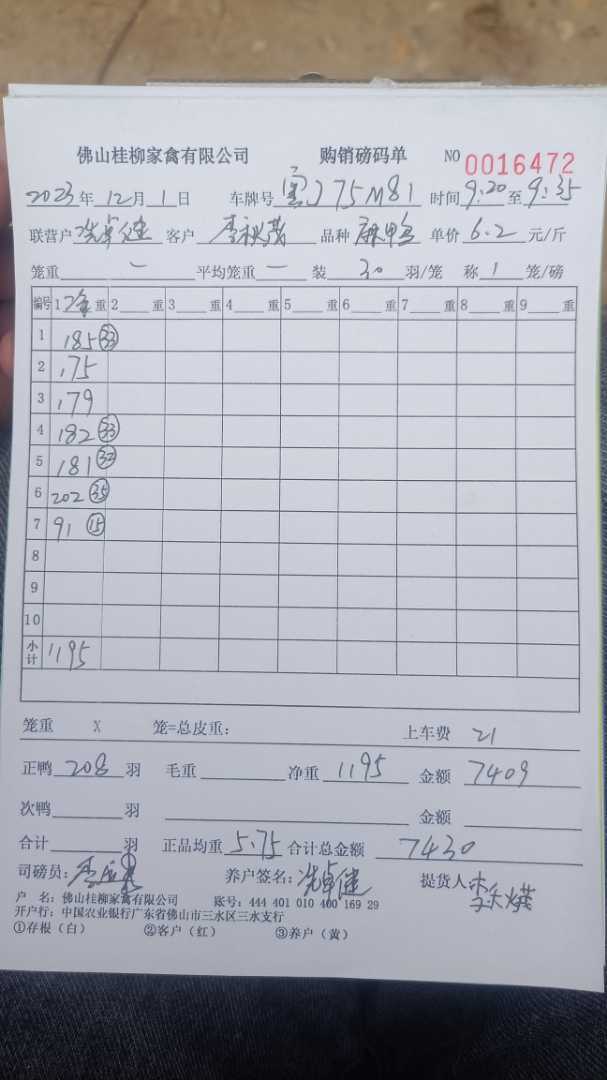 佛山桂柳家禽有限公司 购销磅码单 NO 0016472
2023年12月1日 车牌号 75M81 时间9:20至9:35
联营户 冼卓健 客户 李秋 品种 麻鸭 单价 6.2 元/斤
笼重 — 平均笼重 — 装 30 羽/笼 称 1 笼/磅
编号 1 净 重 2 重 3 重 4 重 5 重 6 重 7 重 8 重 9 重
1 185 33
2 175
3 179
4 182 33
5 181 32
6 202 35
7 91 15
8
9
10
小计 1195
笼重 X 笼=总皮重: 上车费 21
正鸭 208 羽 毛重 净重 1195 金额 7409
次鸭 羽 金额
合计 羽 正品均重 5.75 合计总金额 7430
司磅员: 养户签名: 冼卓健 提货人 李
户 名: 佛山桂柳家禽有限公司 账号: 444 401 010 400 169 29
开户行: 中国农业银行广东省佛山市三水区三水支行
①存根(白) ②客户(红) ③养户(黄)